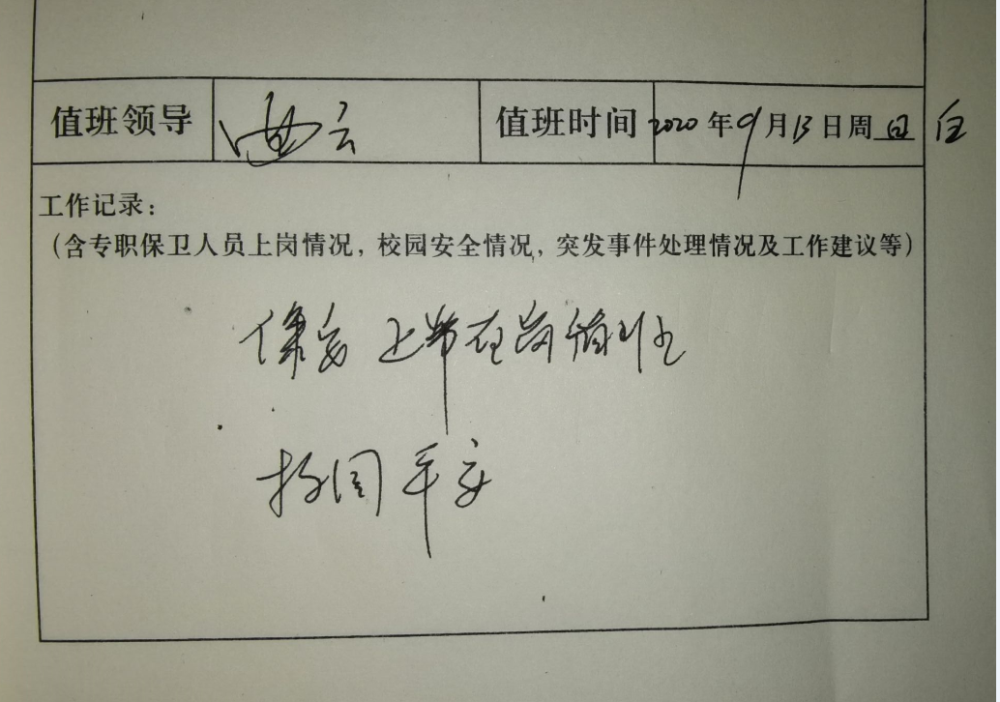 值班领导 曲云 值班时间 2020年9月13日周日 白
工作记录：
（含专职保卫人员上岗情况，校园安全情况，突发事件处理情况及工作建议等）
保安 上带在岗值班
校园平安